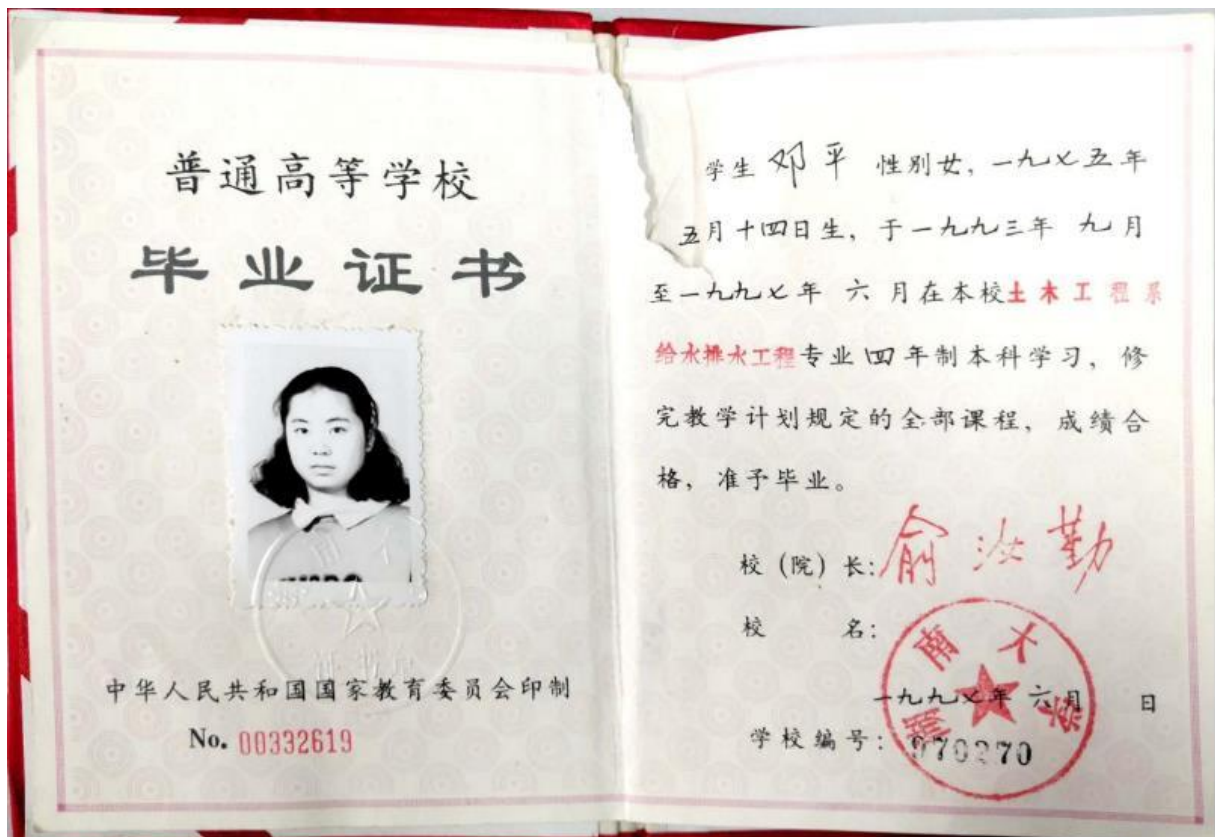 普通高等学校
毕业证书
中华人民共和国国家教育委员会印制
No. 00332619
学生 邓平 性别女，一九七五年
五月十四日生，于一九九三年 九月
至一九九七年 六 月在本校土木工程系
给水排水工程专业四年制本科学习，修
完教学计划规定的全部课程，成绩合
格，准予毕业。
校（院）长：俞汝勤
校 名：
湖南大学
一九九七年 六月 日
学校编号：970270